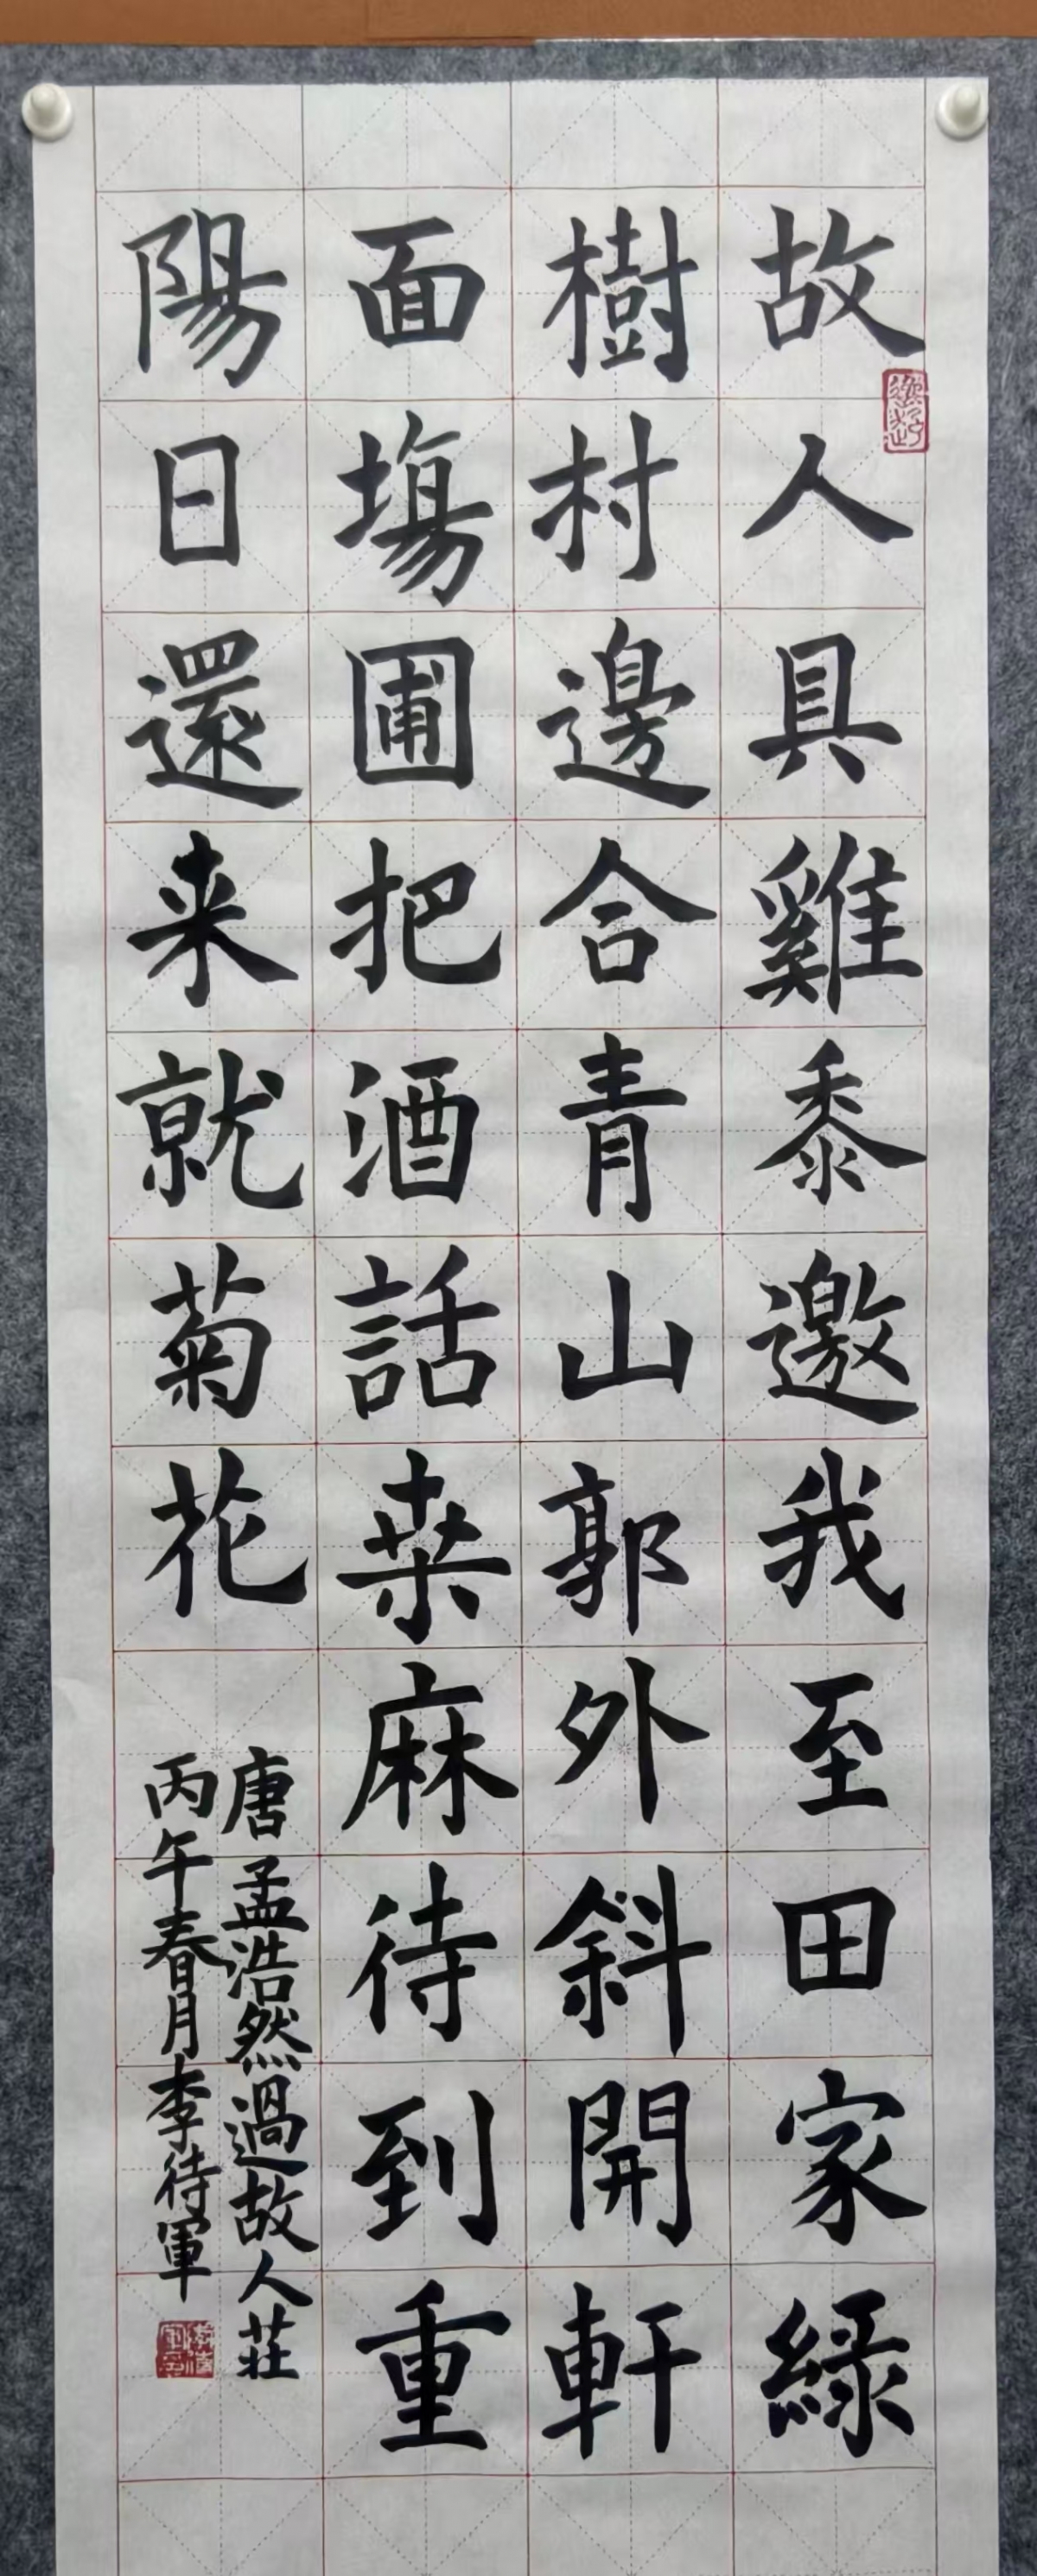 故人具雞黍邀我至田家綠
樹村邊合青山郭外斜開軒
面塲圃把酒話桒麻待到重
陽日還来就菊花
唐孟浩然過故人莊
丙午春月李待軍